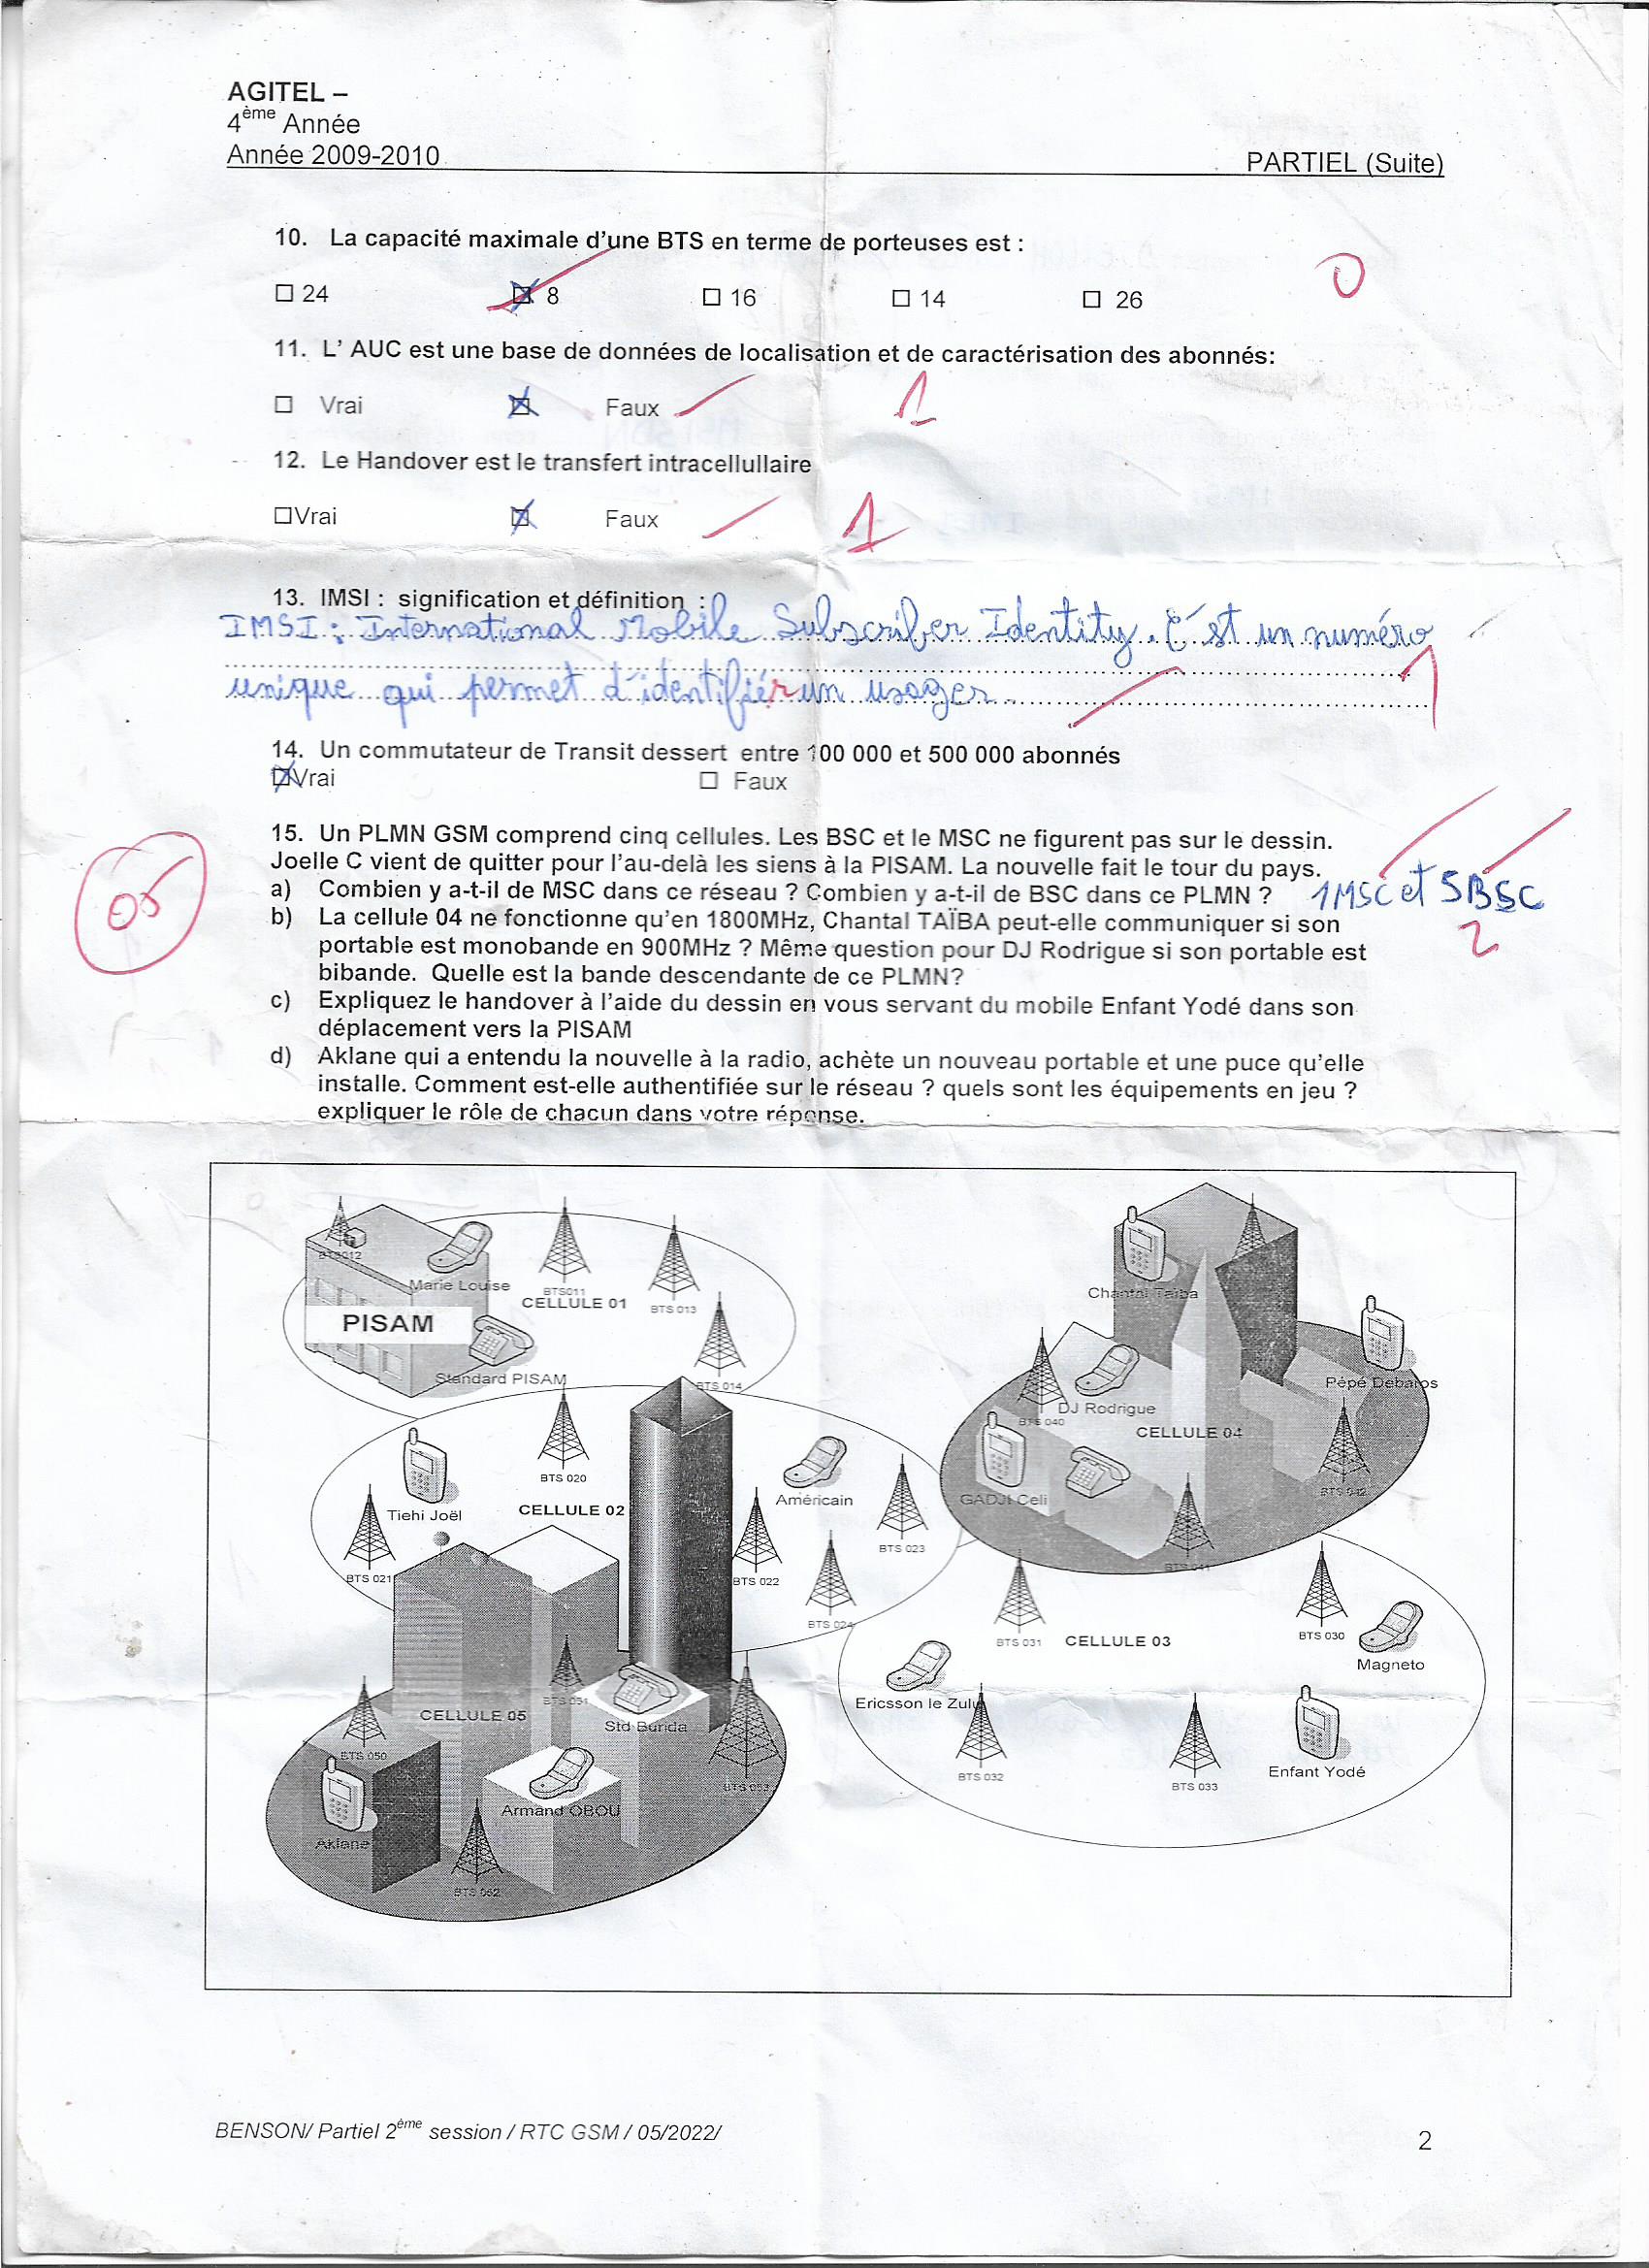 AGITEL –
4ème Année
Année 2009-2010
PARTIEL (Suite)
10. La capacité maximale d'une BTS en terme de porteuses est :
☐ 24 ☒ 8 ☐ 16 ☐ 14 ☐ 26
0
11. L' AUC est une base de données de localisation et de caractérisation des abonnés:
☐ Vrai ☒ Faux
1
12. Le Handover est le transfert intracellullaire
☐Vrai ☒ Faux
1
13. IMSI : signification et définition :
IMSI : International Mobile Subscriber Identity. C'est un numéro
unique qui permet d'identifiér un usager.
1
14. Un commutateur de Transit dessert entre 100 000 et 500 000 abonnés
☒Vrai ☐ Faux
15. Un PLMN GSM comprend cinq cellules. Les BSC et le MSC ne figurent pas sur le dessin.
Joelle C vient de quitter pour l'au-delà les siens à la PISAM. La nouvelle fait le tour du pays.
a) Combien y a-t-il de MSC dans ce réseau ? Combien y a-t-il de BSC dans ce PLMN ?
1MSC et 5BSC
2
05
b) La cellule 04 ne fonctionne qu'en 1800MHz, Chantal TAÏBA peut-elle communiquer si son
portable est monobande en 900MHz ? Même question pour DJ Rodrigue si son portable est
bibande. Quelle est la bande descendante de ce PLMN?
c) Expliquez le handover à l'aide du dessin en vous servant du mobile Enfant Yodé dans son
déplacement vers la PISAM
d) Aklane qui a entendu la nouvelle à la radio, achète un nouveau portable et une puce qu'elle
installe. Comment est-elle authentifiée sur le réseau ? quels sont les équipements en jeu ?
expliquer le rôle de chacun dans votre réponse.
BTS012
Marie Louise
BTS011
CELLULE 01
BTS 013
PISAM
Standard PISAM
BTS 014
Chantal Taïba
Pépé Debaros
DJ Rodrigue
BTS 040
CELLULE 04
GADJI Celi
BTS 042
BTS 041
BTS 020
Tiehi Joël
CELLULE 02
Américain
BTS 023
BTS 021
BTS 022
BTS 024
BTS 031
CELLULE 03
BTS 030
Magneto
Ericsson le Zulu
BTS 032
BTS 033
Enfant Yodé
BTS 051
CELLULE 05
Std Burida
BTS 050
BTS 053
Armand OBOU
Aklane
BTS 052
BENSON/ Partiel 2ème session / RTC GSM / 05/2022/
2